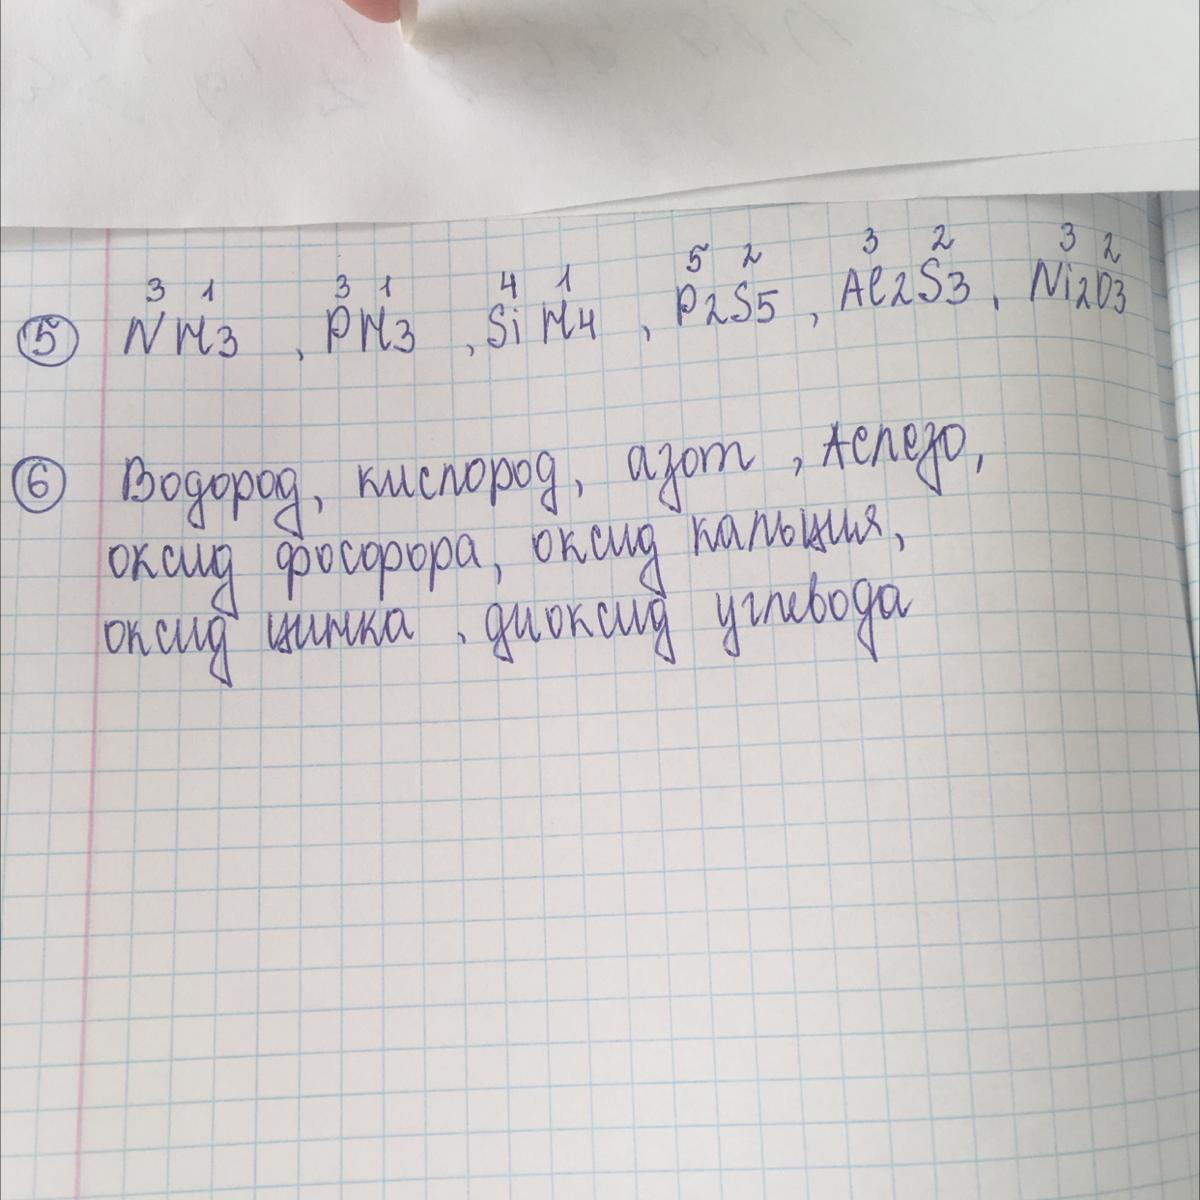 3 1 3 1 4 1 5 2 3 2 3 2
5 NH3, PH3, SiH4, P2S5, Al2S3, Ni2O3
6 Водород, кислород, азот, железо,
оксид фосфора, оксид кальция,
оксид цинка, диоксид углевода